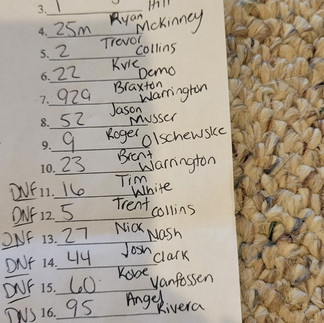 3. 1 Hill
4. 25m Ryan McKinney
5. 2 Trevor Collins
6. 22 Kyle Demo
7. 929 Braxton Warrington
8. 52 Jason Musser
9. 9 Roger Olschewske
10. 23 Brent Warrington
DNF 11. 16 Tim White
DNF 12. 5 Trent Collins
DNF 13. 27 Nick Nash
DNF 14. 44 Josh Clark
DNF 15. 60 Kobe VanFossen
DNS 16. 95 Angel Rivera